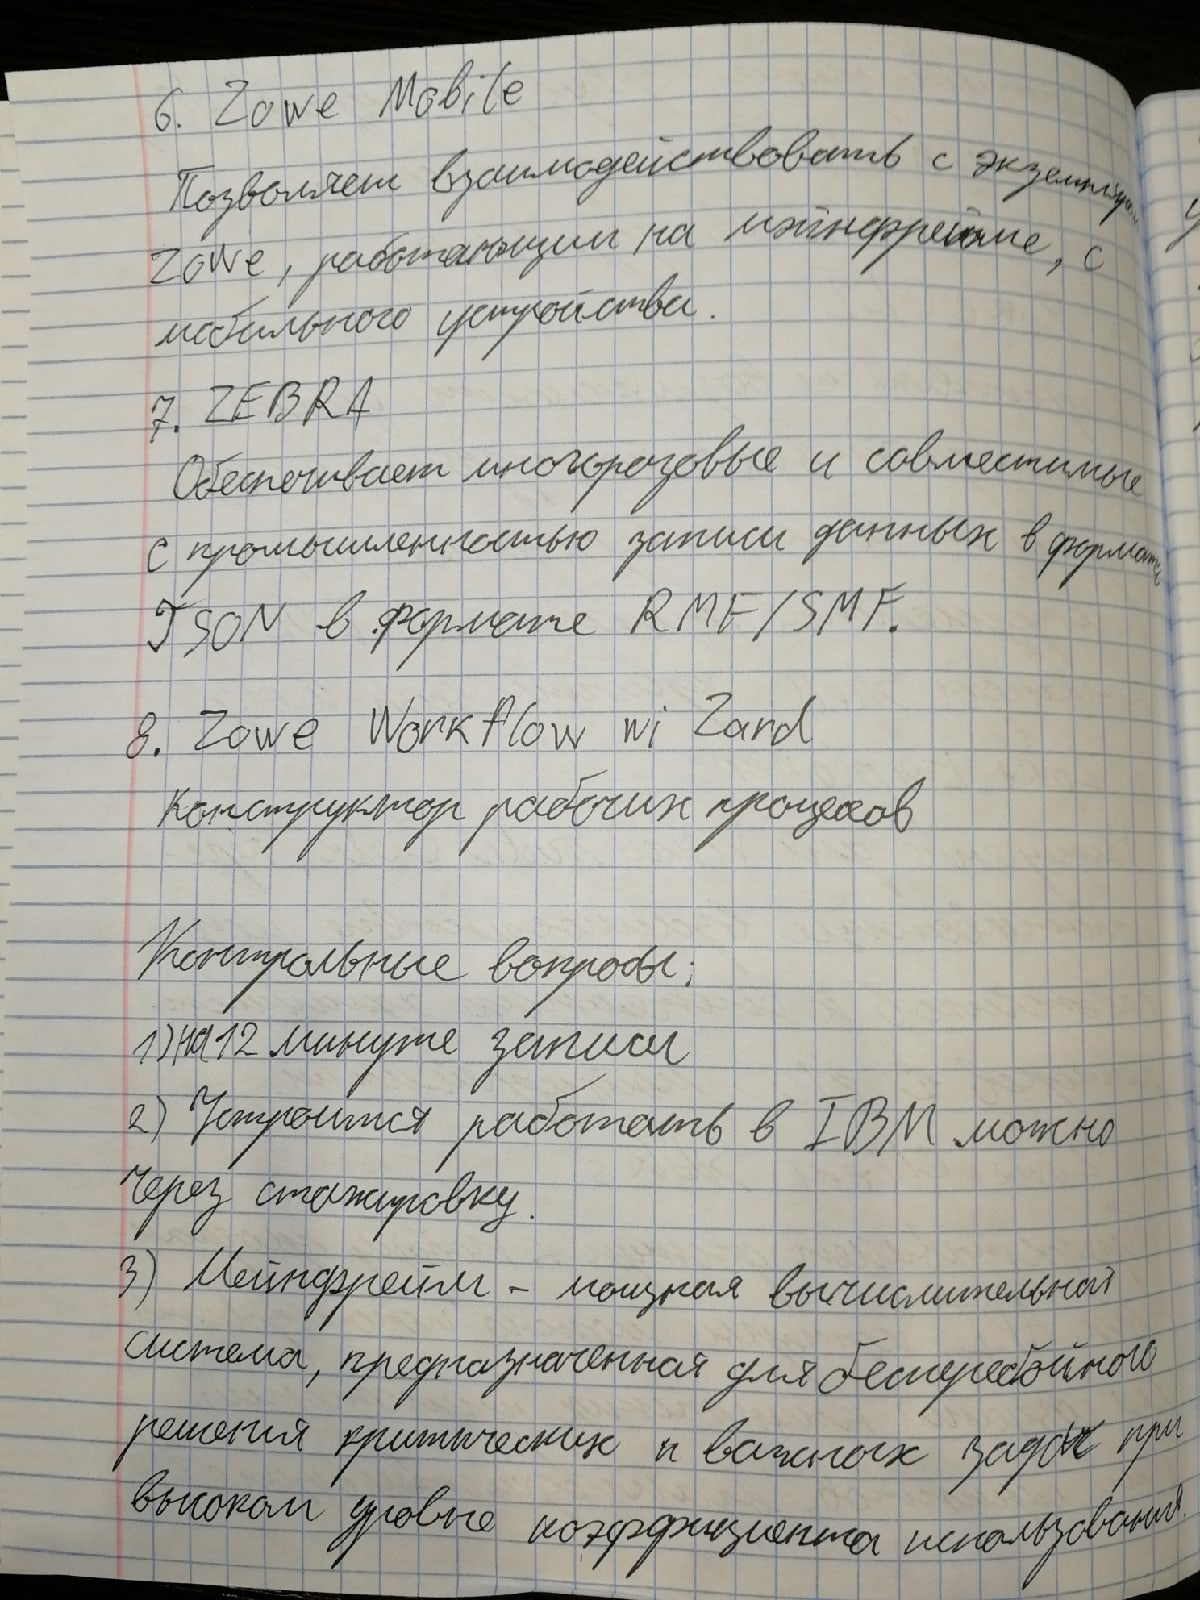 6. Zowe Mobile
Позволяет взаимодействовать с экземпляром
Zowe, работающим на мэйнфрейме, с
мобильного устройства.
7. ZEBRA
Обеспечивает многоразовые и совместимые
с промышленностью записи данных в формате
JSON в формате RMF/SMF.
8. Zowe Workflow wi Zard
Конструктор рабочих процессов
Контрольные вопросы:
1) на 12 минуте записи
2) Устроится работать в IBM можно
через стажировку.
3) Мейнфрейм - мощная вычислительная
система, предназначенная для бесперебойного
решения критических и важных задач при
высоком уровне коэффициента использования.